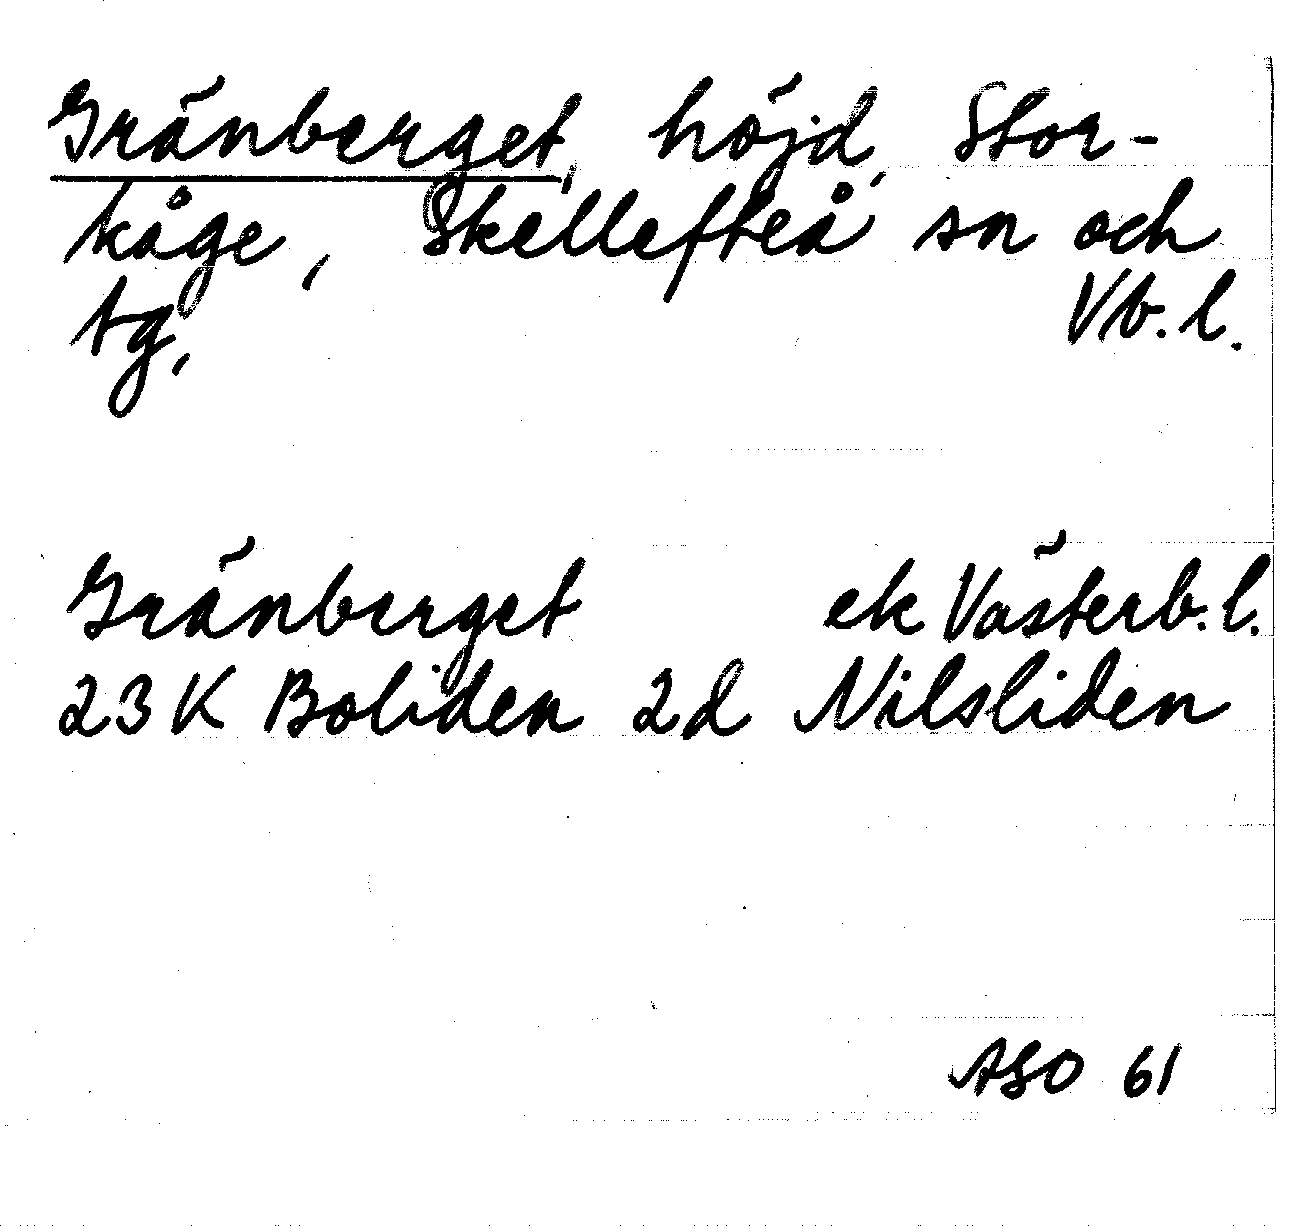 Gränberget, höjd, Stor-
kåge, Skellefteå sn och
tg, Vb. l.
Gränberget ek Västerb. l.
23 K Boliden 2d Nilsliden
ASO 61